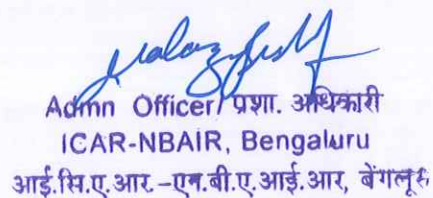 Admn Officer/ प्रशा. अधिकारी
ICAR-NBAIR, Bengaluru
आई.सि.ए.आर.-एन.बी.ए.आई.आर, बेंगलूरु